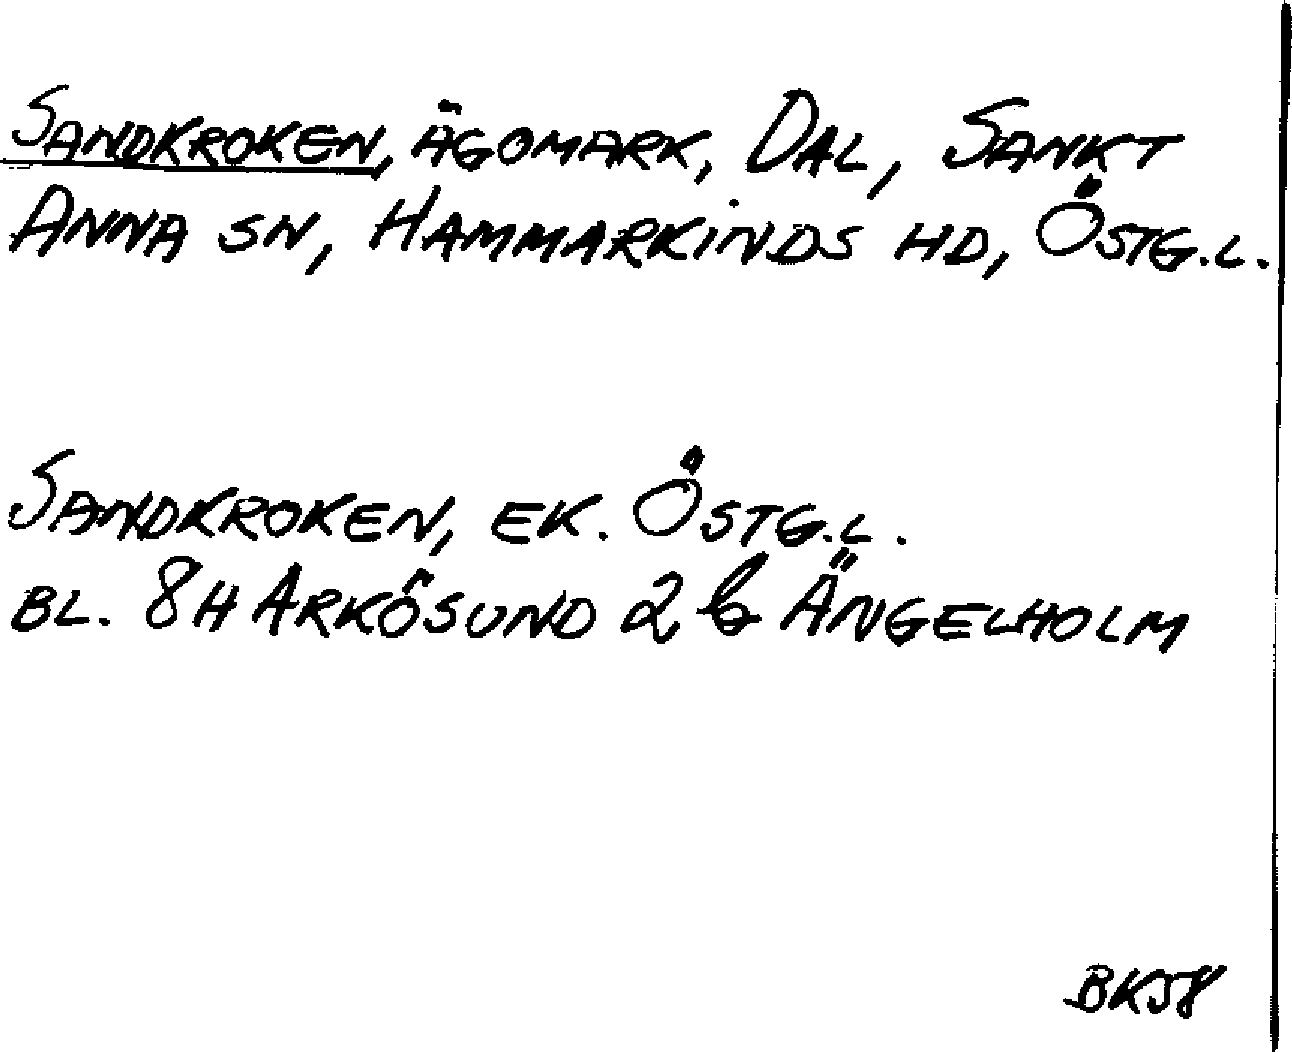 SANDKROKEN, ÄGOMARK, DAL, SANKT
ANNA SN, HAMMARKINDS HD, ÖSTG.L.
SANDKROKEN, EK. ÖSTG.L.
BL. 8H ARKÖSUND 2 b ÄNGELHOLM
BK58